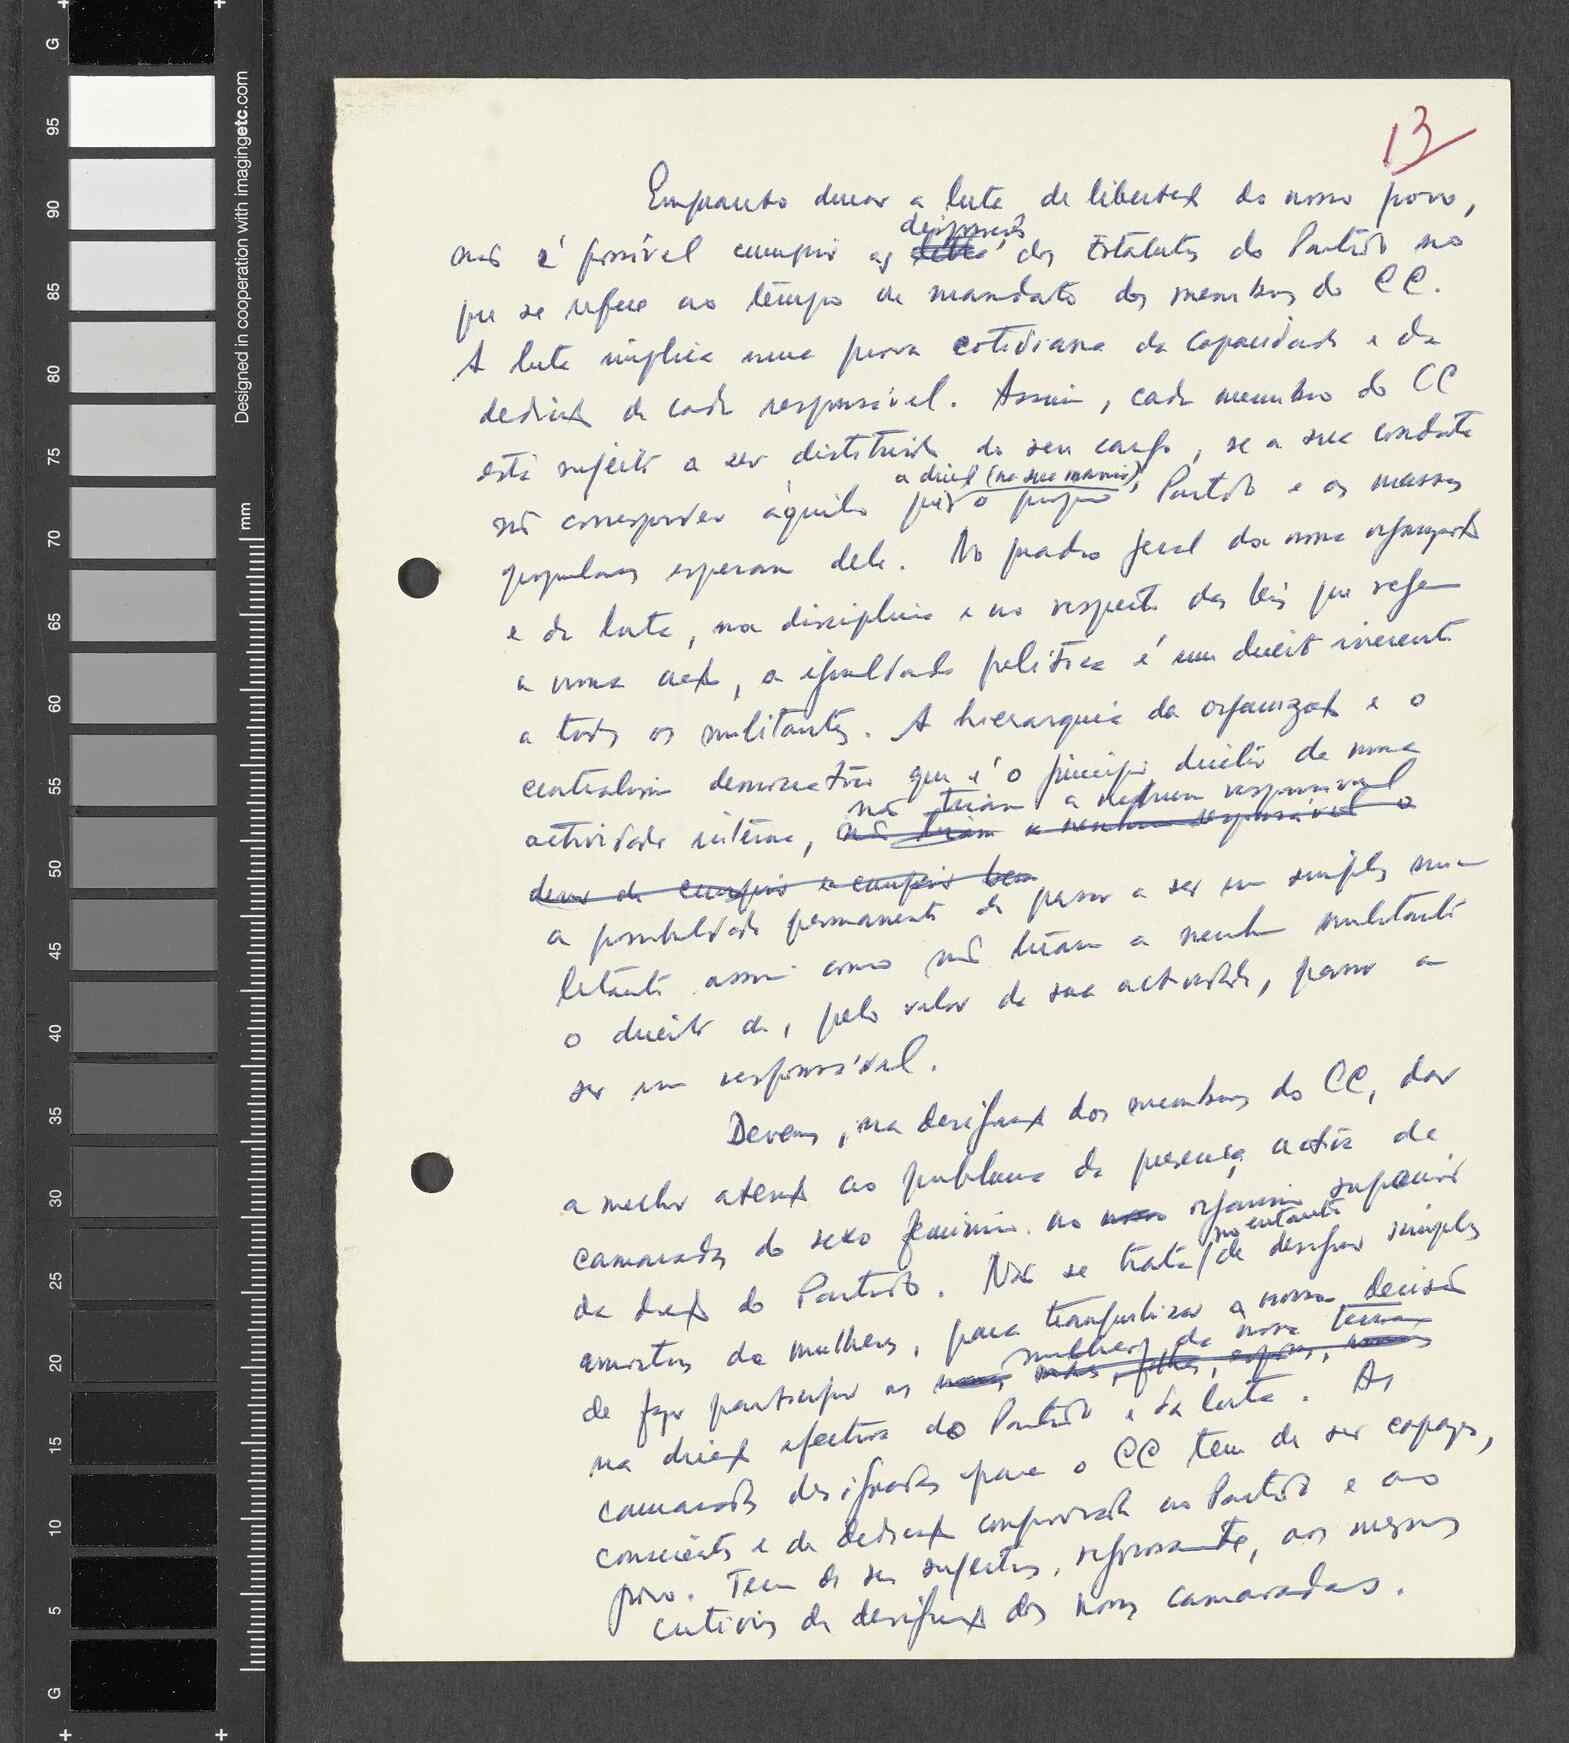 13
Enquanto durar a luta de libertaç do nosso povo,
não é possível cumprir as disposições dos Estatutos do Partido no
que se refere ao tempo de mandato dos membros do CC.
A luta implica uma prova cotidiana da capacidade e da
dedicaç de cada responsável. Assim, cada membro do CC
está sujeito a ser distituido do seu cargo, se a sua conduta
não corresponder àquilo que a direcç (na sua maioria), o próprio Partido e as massas
populares esperam dele. No quadro geral da nossa organizaçã
e da luta, na disciplina e no respeito das leis que regem
a nossa acç, a igualdade política é um direito inerente
a todos os militantes. A hierarquia da organizaç e o
centralismo democrático que é o princípio director da nossa
actividade interna, não tiram a nenhum responsável
não tiram a nenhum responsável o
dever de cumprir e cumprir bem
a possibilidade permanente de passar a ser um simples mi-
litante assim como não tiram a nenhum militante
o direito de, pelo valor da sua actividade, passar a
ser um responsável.
Devemos, na designaç dos membros do CC, dar
a melhor atenç ao problema da presença activa de
camaradas do sexo feminino no nosso organismo superior
da direcç do Partido. Não se trata, no entanto de designar simples
amostras de mulheres, para tranquilizar a nossa decisão
de fazer participar as mulheres da nossa terra
mães, filhas, esposas,
na direcç efectiva do Partido e da luta. As
camaradas designadas para o CC tem de ser capazes,
conscientes e de dedicaç comprovada ao Partido e ao
povo. Tem de ser sujeitas, rigorosamente, aos mesmos
critérios de designaç dos nossos camaradas.
Designed in cooperation with imagingetc.com
mm
G
95
90
85
80
75
70
65
60
55
50
45
40
35
30
25
20
15
10
5
G